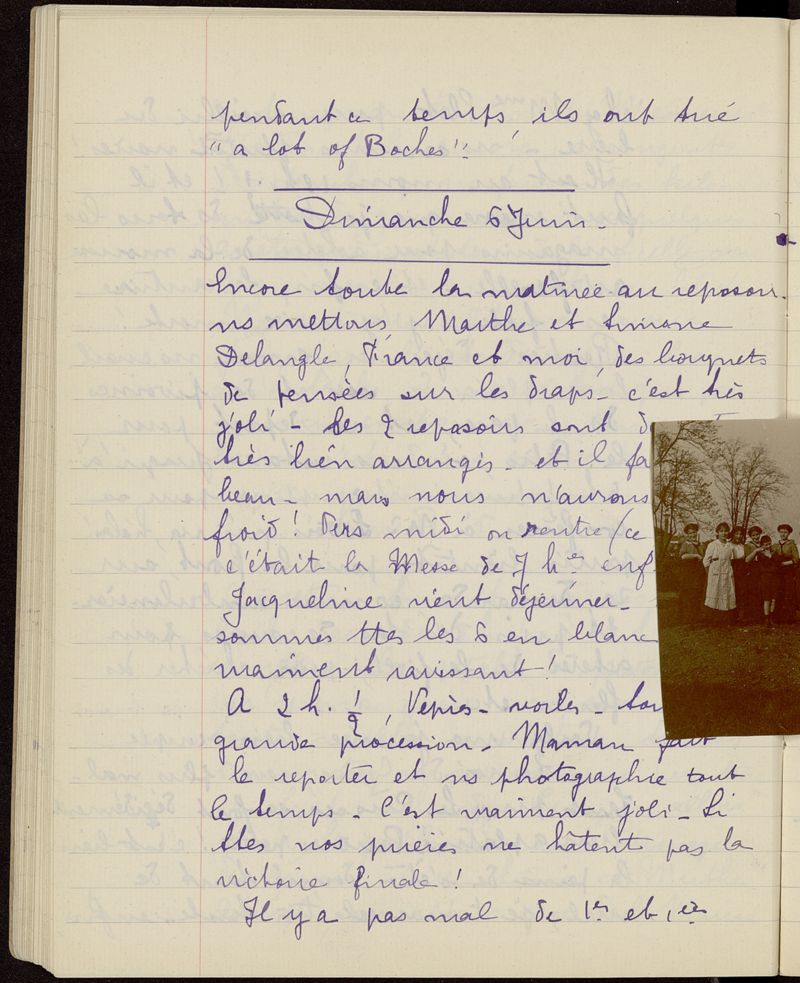 pendant ce temps, ils ont tué
"a lot of Boches".
Dimanche 6 Juin.
Encore toute la matinée au reposoir.
ns mettons, Marthe et Simone
Delangle, France et moi, des bouquets
de pensées sur les draps - c'est très
joli - Les 2 reposoirs sont
très bien arrangés - et il fa
beau - mais nous n'aurons
froid! Vers midi on rentre (ce
c'était la Messe de 7 h
Jacqueline vient déjeuner -
sommes ttes les 6 en blanc
vraiment ravissant!
A 2 h. 1/2, Vêpres - voiles -
grande procession - Maman fait
le reporter et ns photographie tout
le temps - C'est vraiment joli - Si
ttes nos prières ne hâtent pas la
victoire finale!
Il y a pas mal de 1er et 1ère